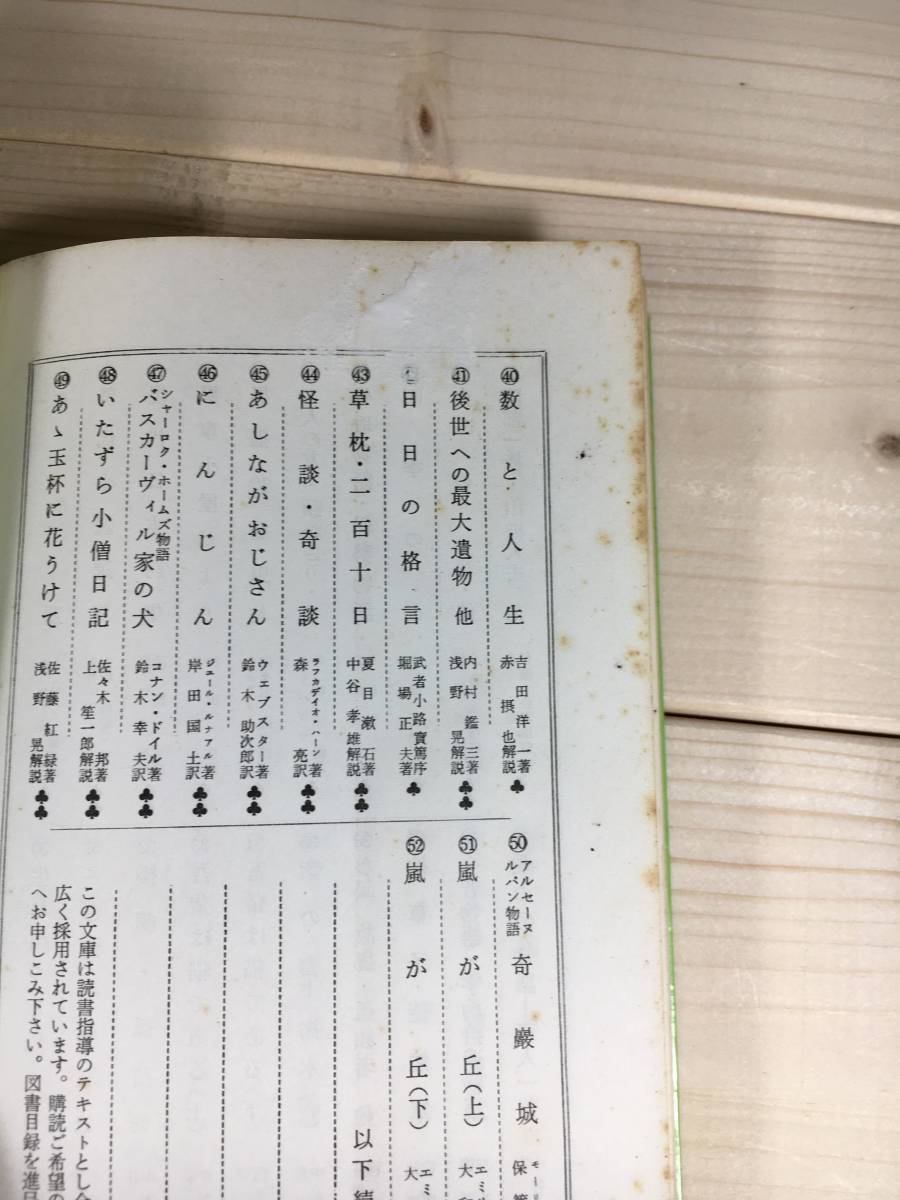 ㊵数と人生 吉田洋一著 赤摂也解説♣
㊶後世への最大遺物 他 内村鑑三著 浅野晃解説♣♣
㊷日日の格言 武者小路實篤序 堀場正夫著♣
㊸草枕・二百十日 夏目漱石著 中谷孝雄解説♣♣
㊹怪談・奇談 ラフカディオ・ハーン著 森亮訳♣♣
㊺あしながおじさん ウェブスター著 鈴木助次郎訳♣♣
㊻にんじん ジュール・ルナアル著 岸田国士訳♣♣
㊼シャーロク・ホームズ物語 バスカーヴィル家の犬 コナン・ドイル著 鈴木幸夫訳♣♣
㊽いたずら小僧日記 佐々木邦著 上笙一郎解説♣♣
㊾あゝ玉杯に花うけて 佐藤紅緑著 浅野晃解説♣♣
㊿アルセーヌルパン物語 奇巌城
51嵐が丘(上)
52嵐が丘(下)
以下続
この文庫は読書指導のテキストとし
広く採用されています。購読ご希望の
へお申しこみ下さい。図書目録を進呈